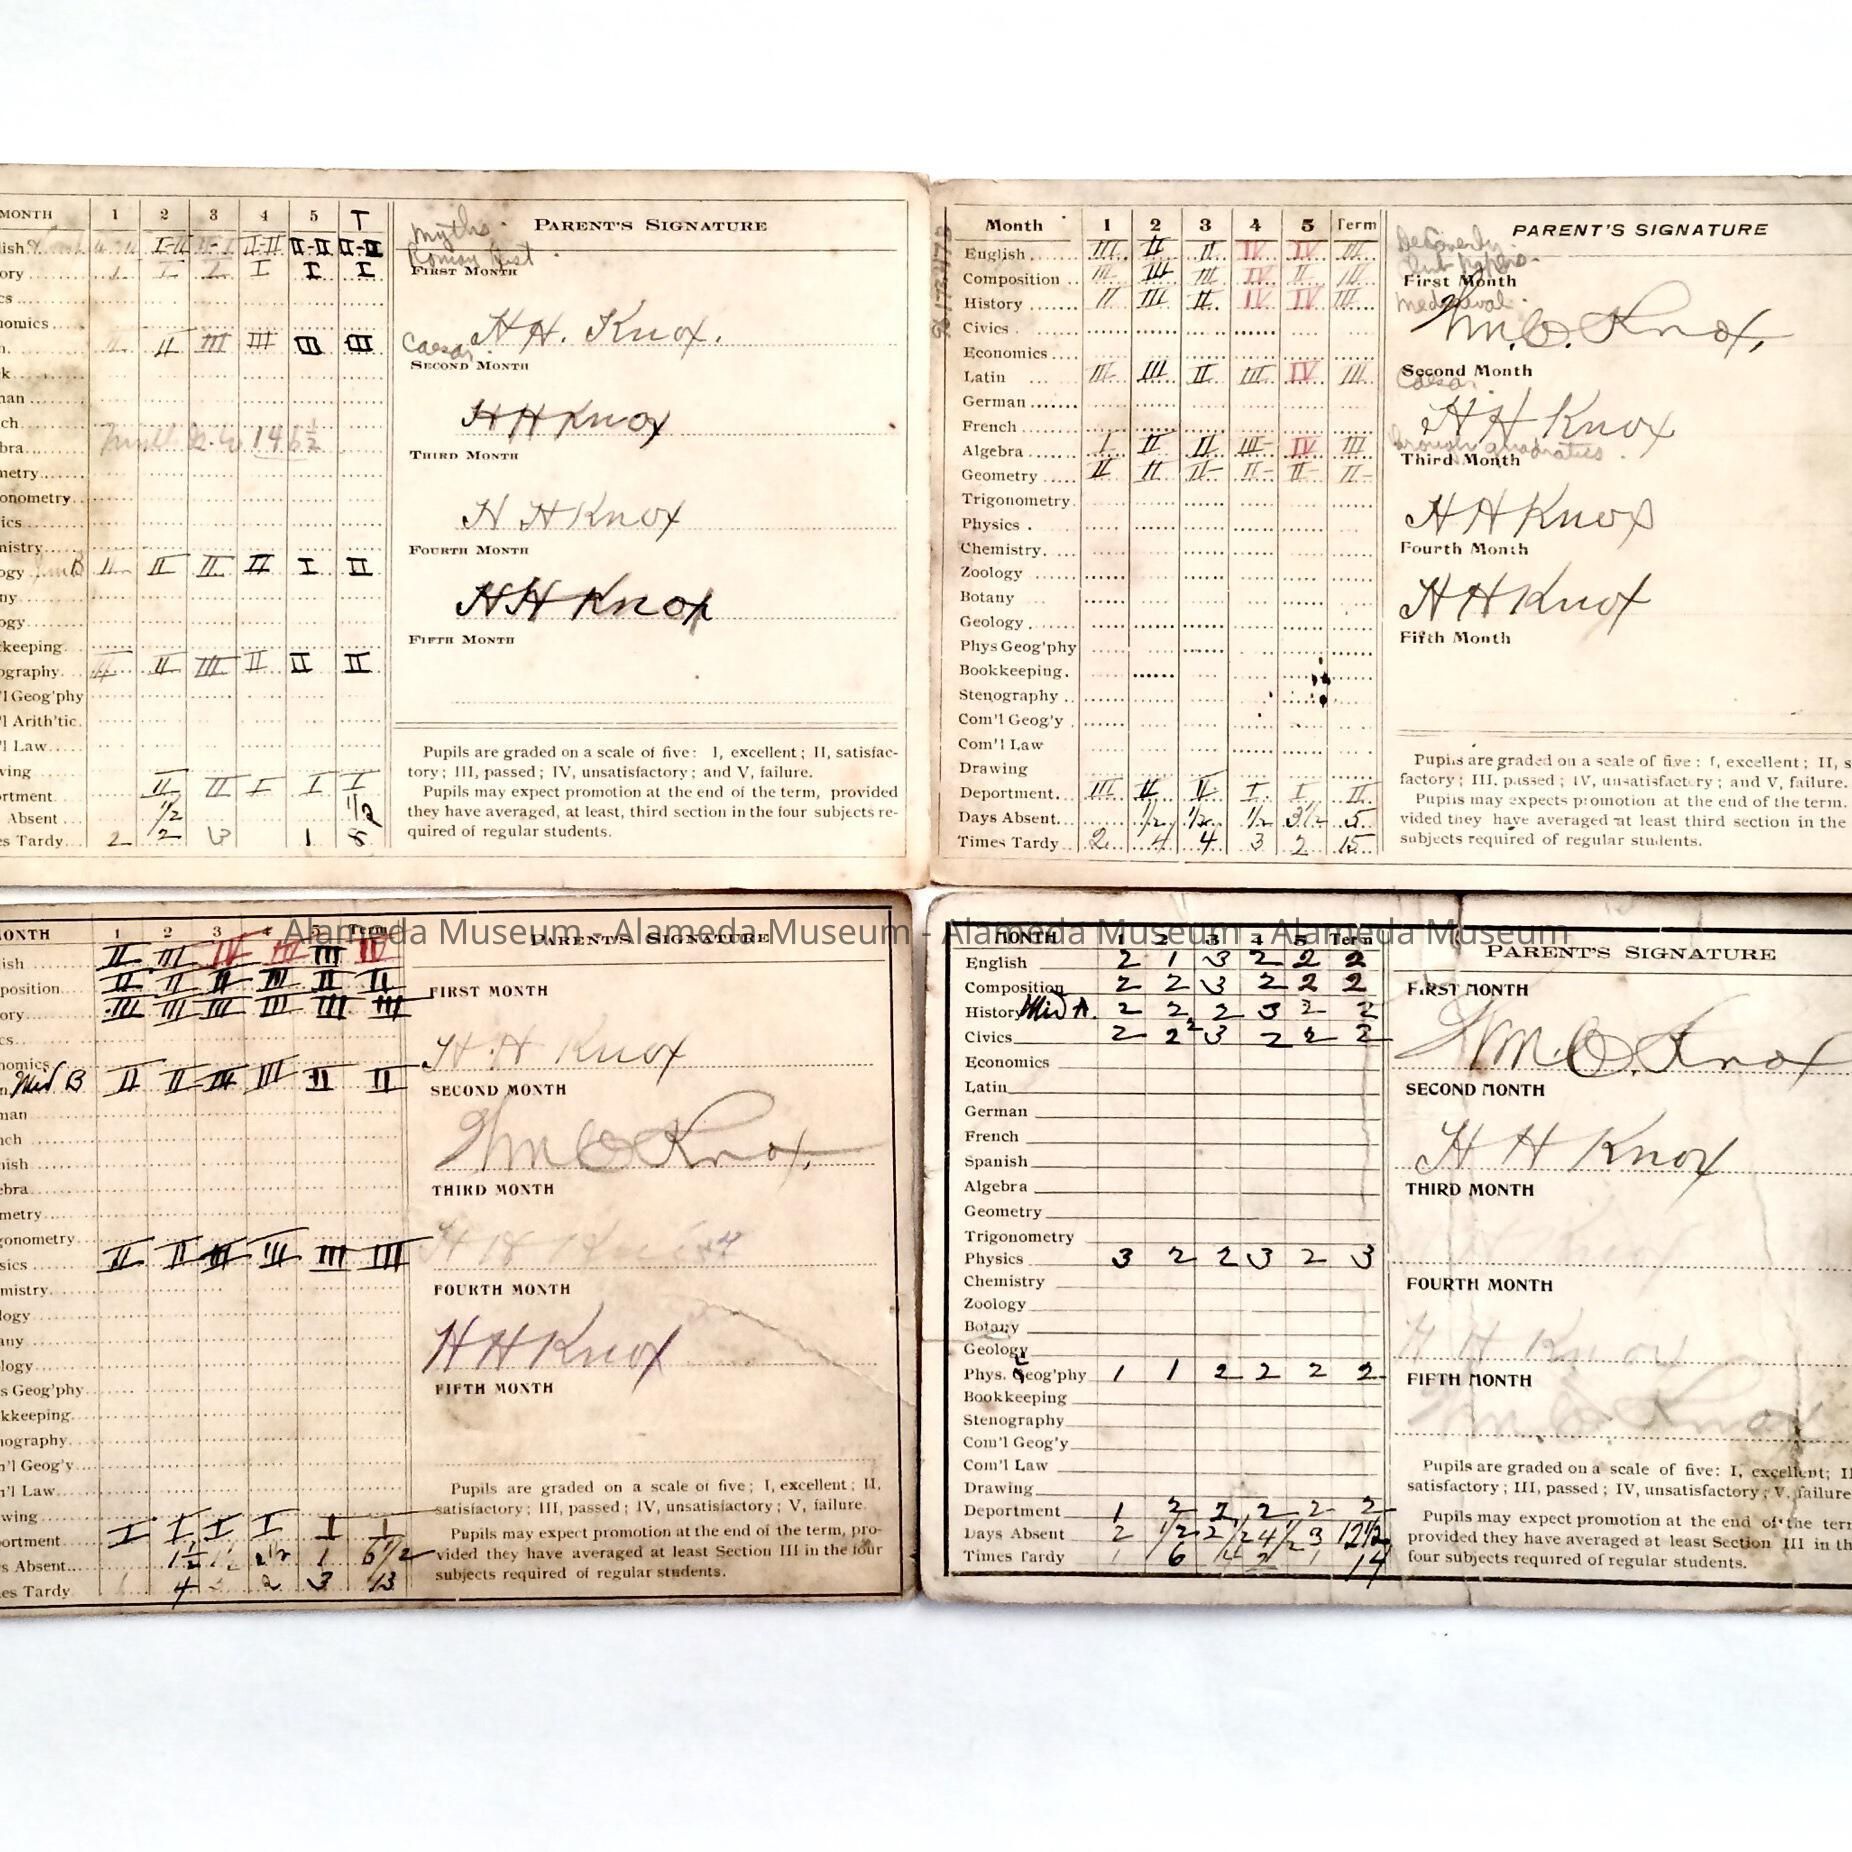 MONTH 1 2 3 4 5 T
lish II-II I-II II-I II-II II-II II-II
ory 1 I I I I I
cs
nomics
h. II III III III III
k
man
ch
bra 146½
metry
onometry
ics
mistry
ogy B II II II II I II
ny
ogy
keeping
ography II II III II II II
'l Geog'phy
'l Arith'tic.
'l Law
wing
ortment. II II I I I
Absent 1/2 1/2
s Tardy 2 2 3 1 8
Myths.
PARENT'S SIGNATURE
Roman Hist.
FIRST MONTH
H H. Knox.
Caesar.
SECOND MONTH
H H Knox
THIRD MONTH
H H Knox
FOURTH MONTH
H H Knox
FIFTH MONTH
Pupils are graded on a scale of five: I, excellent; II, satisfac-
tory; III, passed; IV, unsatisfactory; and V, failure.
Pupils may expect promotion at the end of the term, provided
they have averaged, at least, third section in the four subjects re-
quired of regular students.
Month 1 2 3 4 5 Term
English III II II IV IV III
Composition III III III IV II III
History II III II IV IV III
Civics
Economics
Latin III III II III IV III
German
French
Algebra I II II III IV III
Geometry II II II II II II
Trigonometry
Physics
Chemistry
Zoology
Botany
Geology
Phys Geog'phy
Bookkeeping
Stenography
Com'l Geog'y
Com'l Law
Drawing
Deportment III II II I I II
Days Absent 1/2 1/2 1/2 3 1/2 5
Times Tardy 2 4 4 3 2 15
DeCoverly
PARENT'S SIGNATURE
Papers.
First Month
Mediaeval.
Wm. O. Knox,
Second Month
Caesar.
H H Knox
through quadratics.
Third Month
H H Knox
Fourth Month
H H Knox
Fifth Month
Pupils are graded on a scale of five: I, excellent; II, s
factory; III, passed; IV, unsatisfactory; and V, failure.
Pupils may expects promotion at the end of the term.
vided they have averaged at least third section in the
subjects required of regular students.
Alameda Museum - Alameda Museum - Alameda Museum - Alameda Museum
ONTH 1 2 3 4 5 Term
lish II III IV IV III IV
position II II II III II II
ory III III III III III III
cs
nomics
Mid B II II III III II II
man
nch
nish
ebra
metry
gonometry
sics II II III III III III
mistry
logy
any
logy
s Geog'phy
kkeeping
nography
m'l Geog'y
n'l Law
wing
ortment I I I I I 1
s Absent 1½ 2½ 1 6 1/2
es Tardy 4 2 3 13
PARENT'S SIGNATURE
FIRST MONTH
H H Knox
SECOND MONTH
Wm O Knox,
THIRD MONTH
FOURTH MONTH
H H Knox
FIFTH MONTH
Pupils are graded on a scale of five; I, excellent; II,
satisfactory; III, passed; IV, unsatisfactory; V, failure.
Pupils may expect promotion at the end of the term, pro-
vided they have averaged at least Section III in the four
subjects required of regular students.
MONTH 1 2 3 4 5 Term
English 2 1 3 2 2 2
Composition 2 2 3 2 2 2
History Mid A. 2 2 2 3 2 2
Civics 2 2 3 2 2 2
Economics
Latin
German
French
Spanish
Algebra
Geometry
Trigonometry
Physics 3 2 2 3 2 3
Chemistry
Zoology
Botany
Geology
Phys. Geog'phy 1 1 2 2 2 2
Bookkeeping
Stenography
Com'l Geog'y
Com'l Law
Drawing
Deportment 1 2 2 2 2 2
Days Absent 2 1/2 2 1/2 4 1/2 3 12 1/2
Times Tardy 1 6 4 2 1 14
PARENT'S SIGNATURE
FIRST MONTH
Wm. O. Knox
SECOND MONTH
H H Knox
THIRD MONTH
FOURTH MONTH
H H Knox
FIFTH MONTH
Wm. O. Knox
Pupils are graded on a scale of five: I, excellent; II
satisfactory; III, passed; IV, unsatisfactory; V, failure
Pupils may expect promotion at the end of the term
provided they have averaged at least Section III in th
four subjects required of regular students.